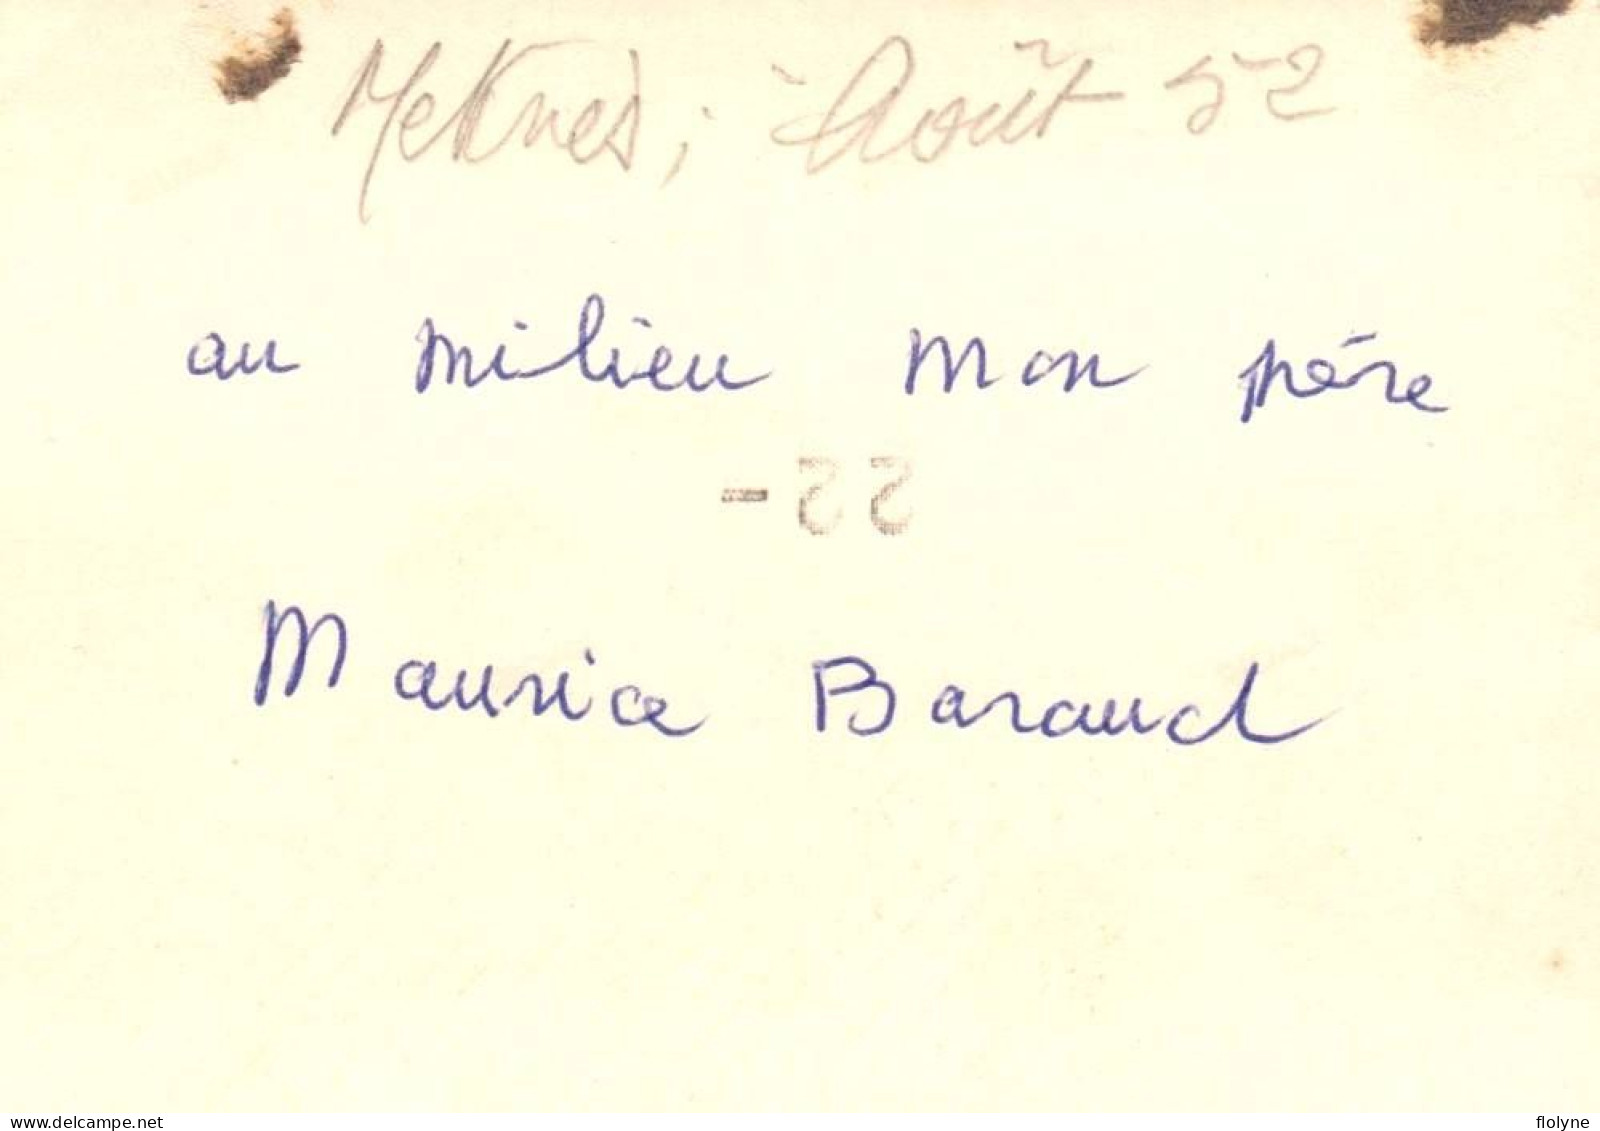 Meknès, Août 52
au milieu mon père
22-
Maurice Baraud
delcampe.net
flolyne